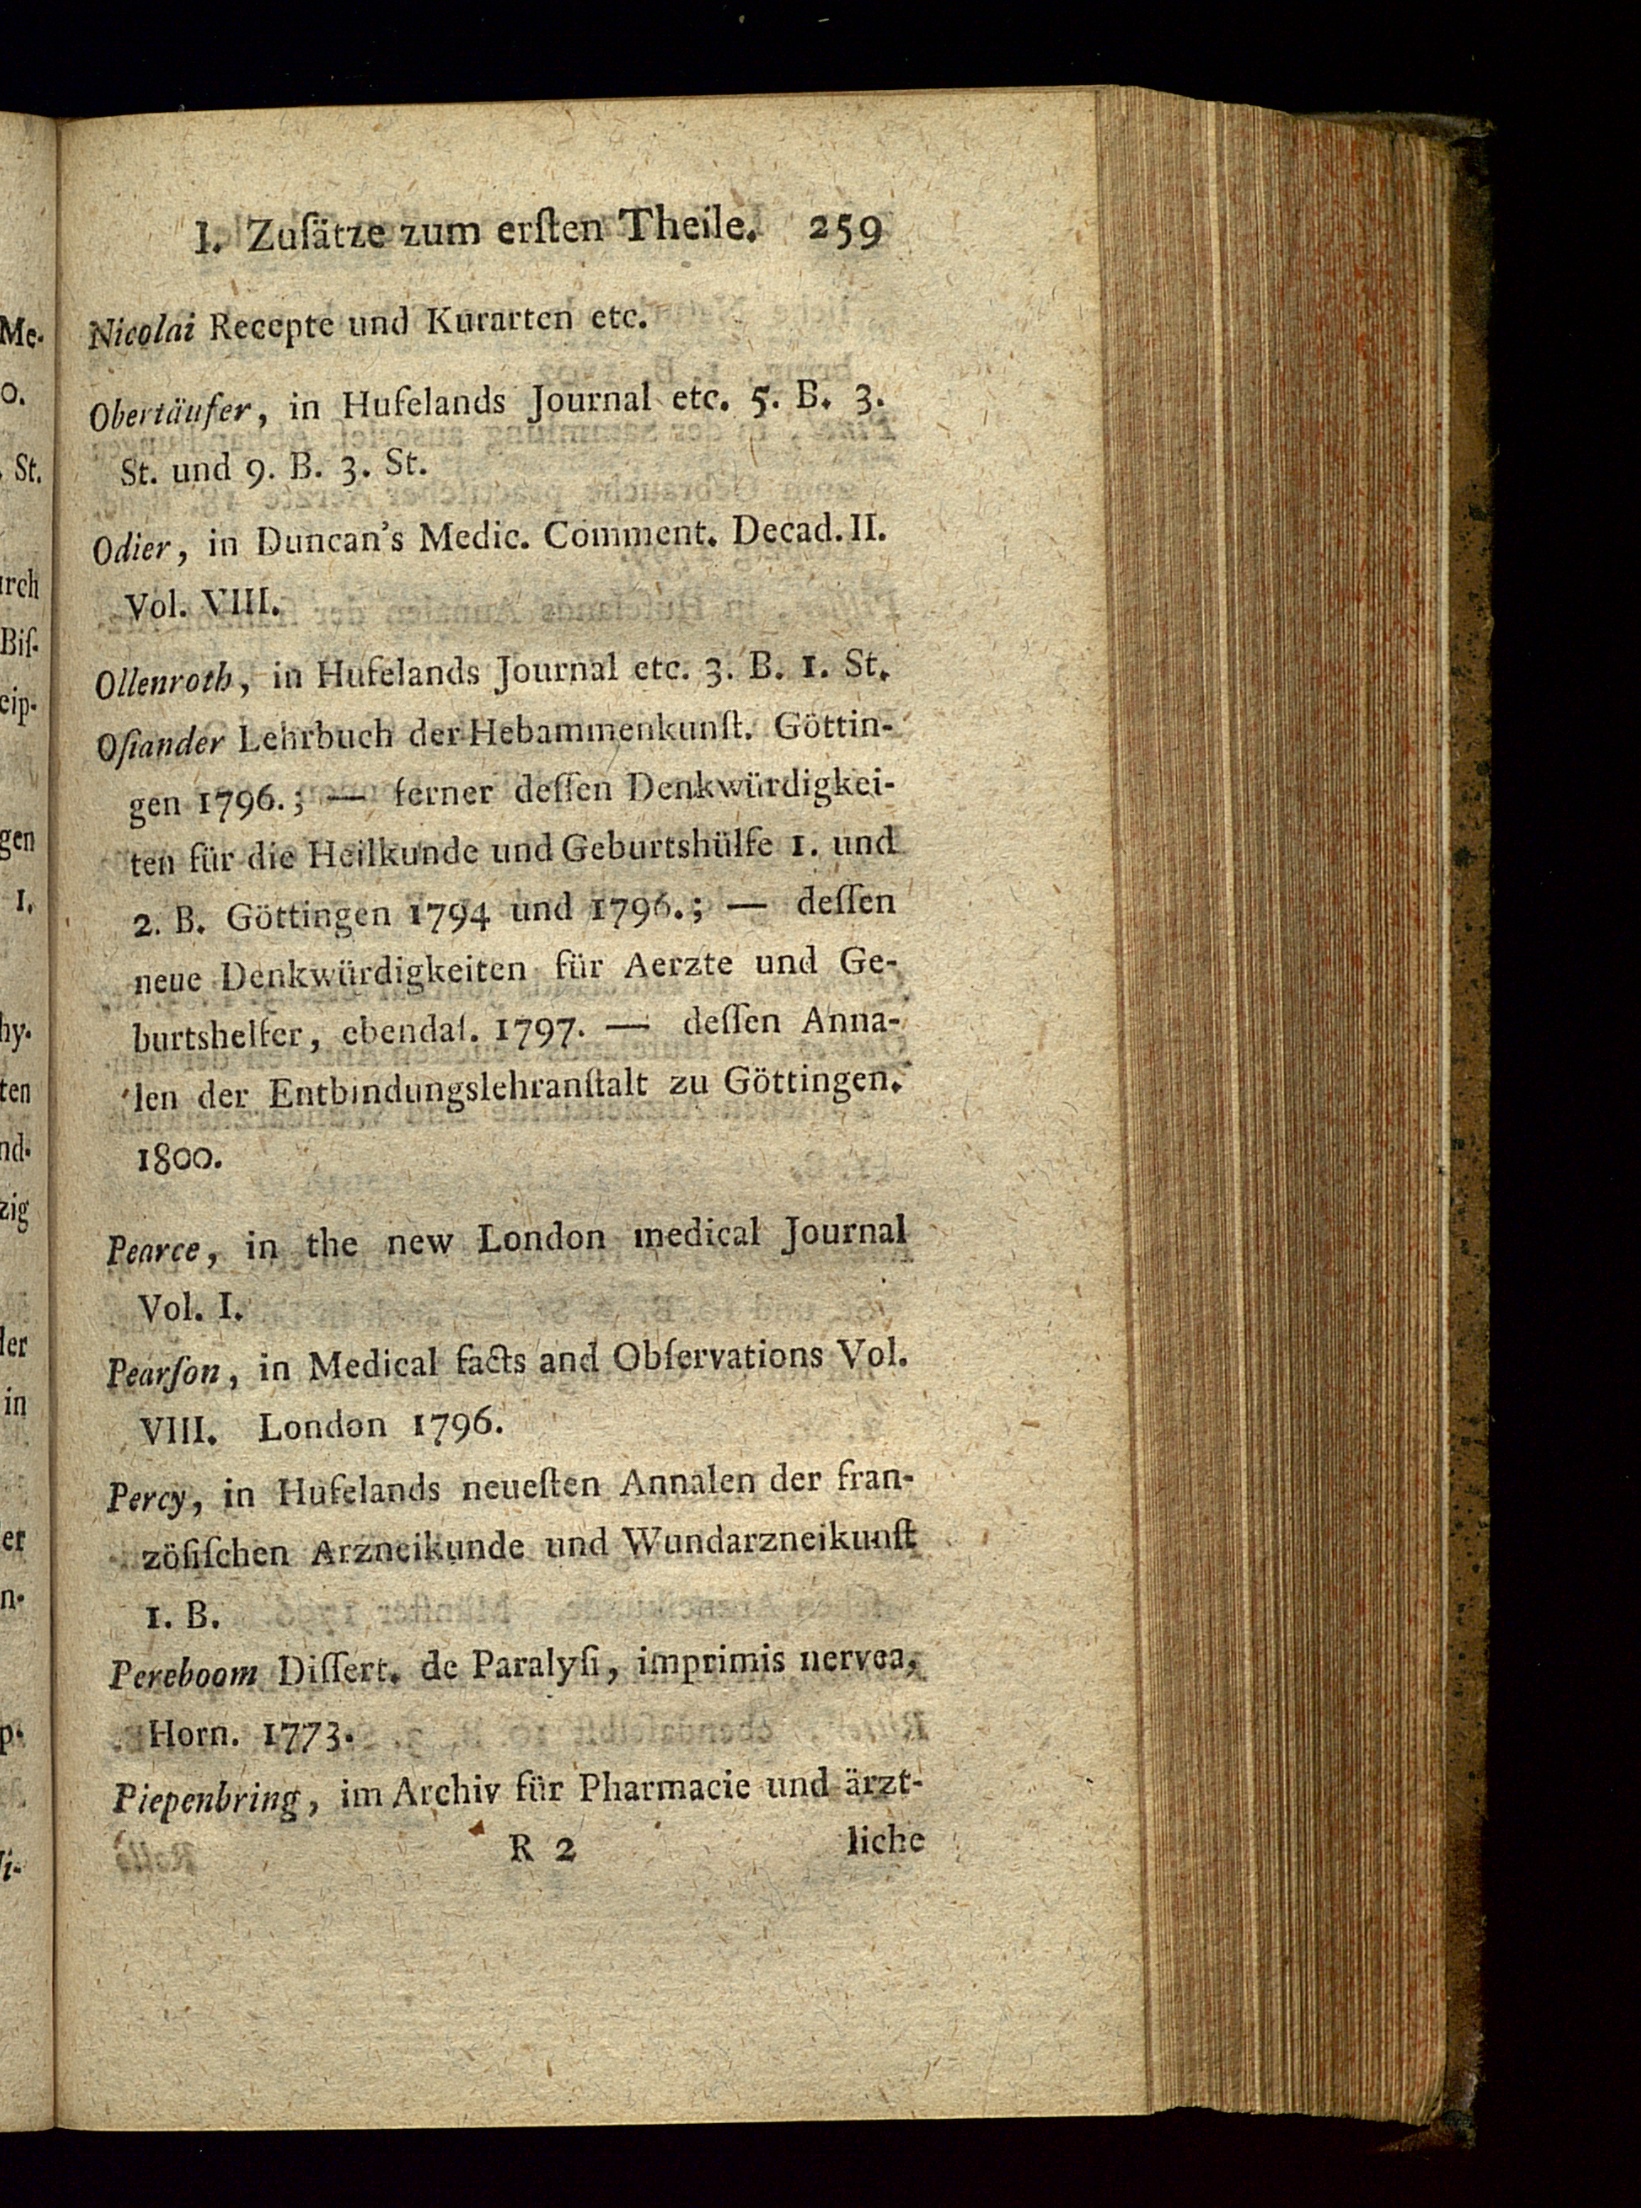 I. Zuſätze zum erſten Theile. 259
Nicolai Recepte und Kurarten etc.
Obertäufer, in Hufelands Journal etc. 5. B. 3.
St. und 9. B. 3. St.
Odier, in Duncan's Medic. Comment. Decad. II.
Vol. VIII.
Ollenroth, in Hufelands Journal etc. 3. B. 1. St.
Oſiander Lehrbuch der Hebammenkunſt. Göttin-
gen 1796.; — ferner deſſen Denkwürdigkei-
ten für die Heilkunde und Geburtshülfe 1. und
2. B. Göttingen 1794 und 1796.; — deſſen
neue Denkwürdigkeiten für Aerzte und Ge-
burtshelfer, ebendaſ. 1797. — deſſen Anna-
len der Entbindungslehranſtalt zu Göttingen.
1800.
Pearce, in the new London medical Journal
Vol. I.
Pearſon, in Medical facts and Obſervations Vol.
VIII. London 1796.
Percy, in Hufelands neueſten Annalen der fran-
zöſiſchen Arzneikunde und Wundarzneikunſt
1. B.
Pereboom Diſſert. de Paralyſi, imprimis nervea,
Horn. 1773.
Piepenbring, im Archiv für Pharmacie und ärzt-
R 2 liche